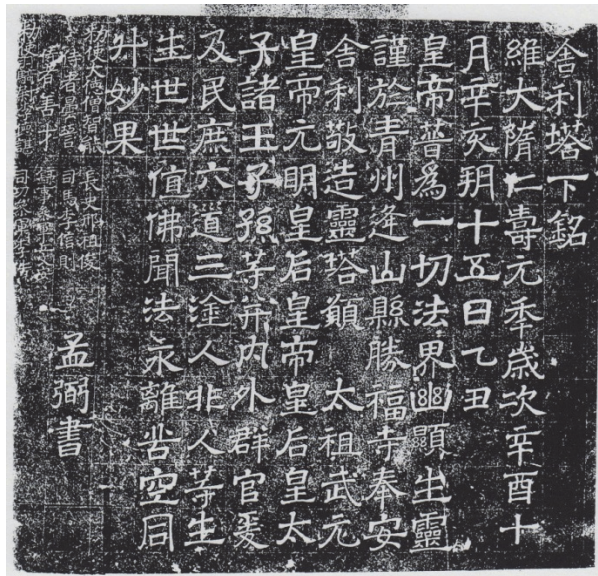 舍利塔下銘
維大隋仁壽元年歲次辛酉十
月辛亥朔十五日乙丑
皇帝普為一切法界幽顯生靈
謹於青州逄山縣勝福寺奉安
舍利敬造靈塔願 太祖武元
皇帝元明皇后皇帝皇后皇太
子諸王子孫等并內外群官爰
及民庶六道三塗人非人等生
生世世值佛聞法永離苦空同
升妙果
孟弼書
敕使大德僧智能 長史邢祖俊
侍者曇晉 司馬李信則
侍者善才 錄事參軍丘文安